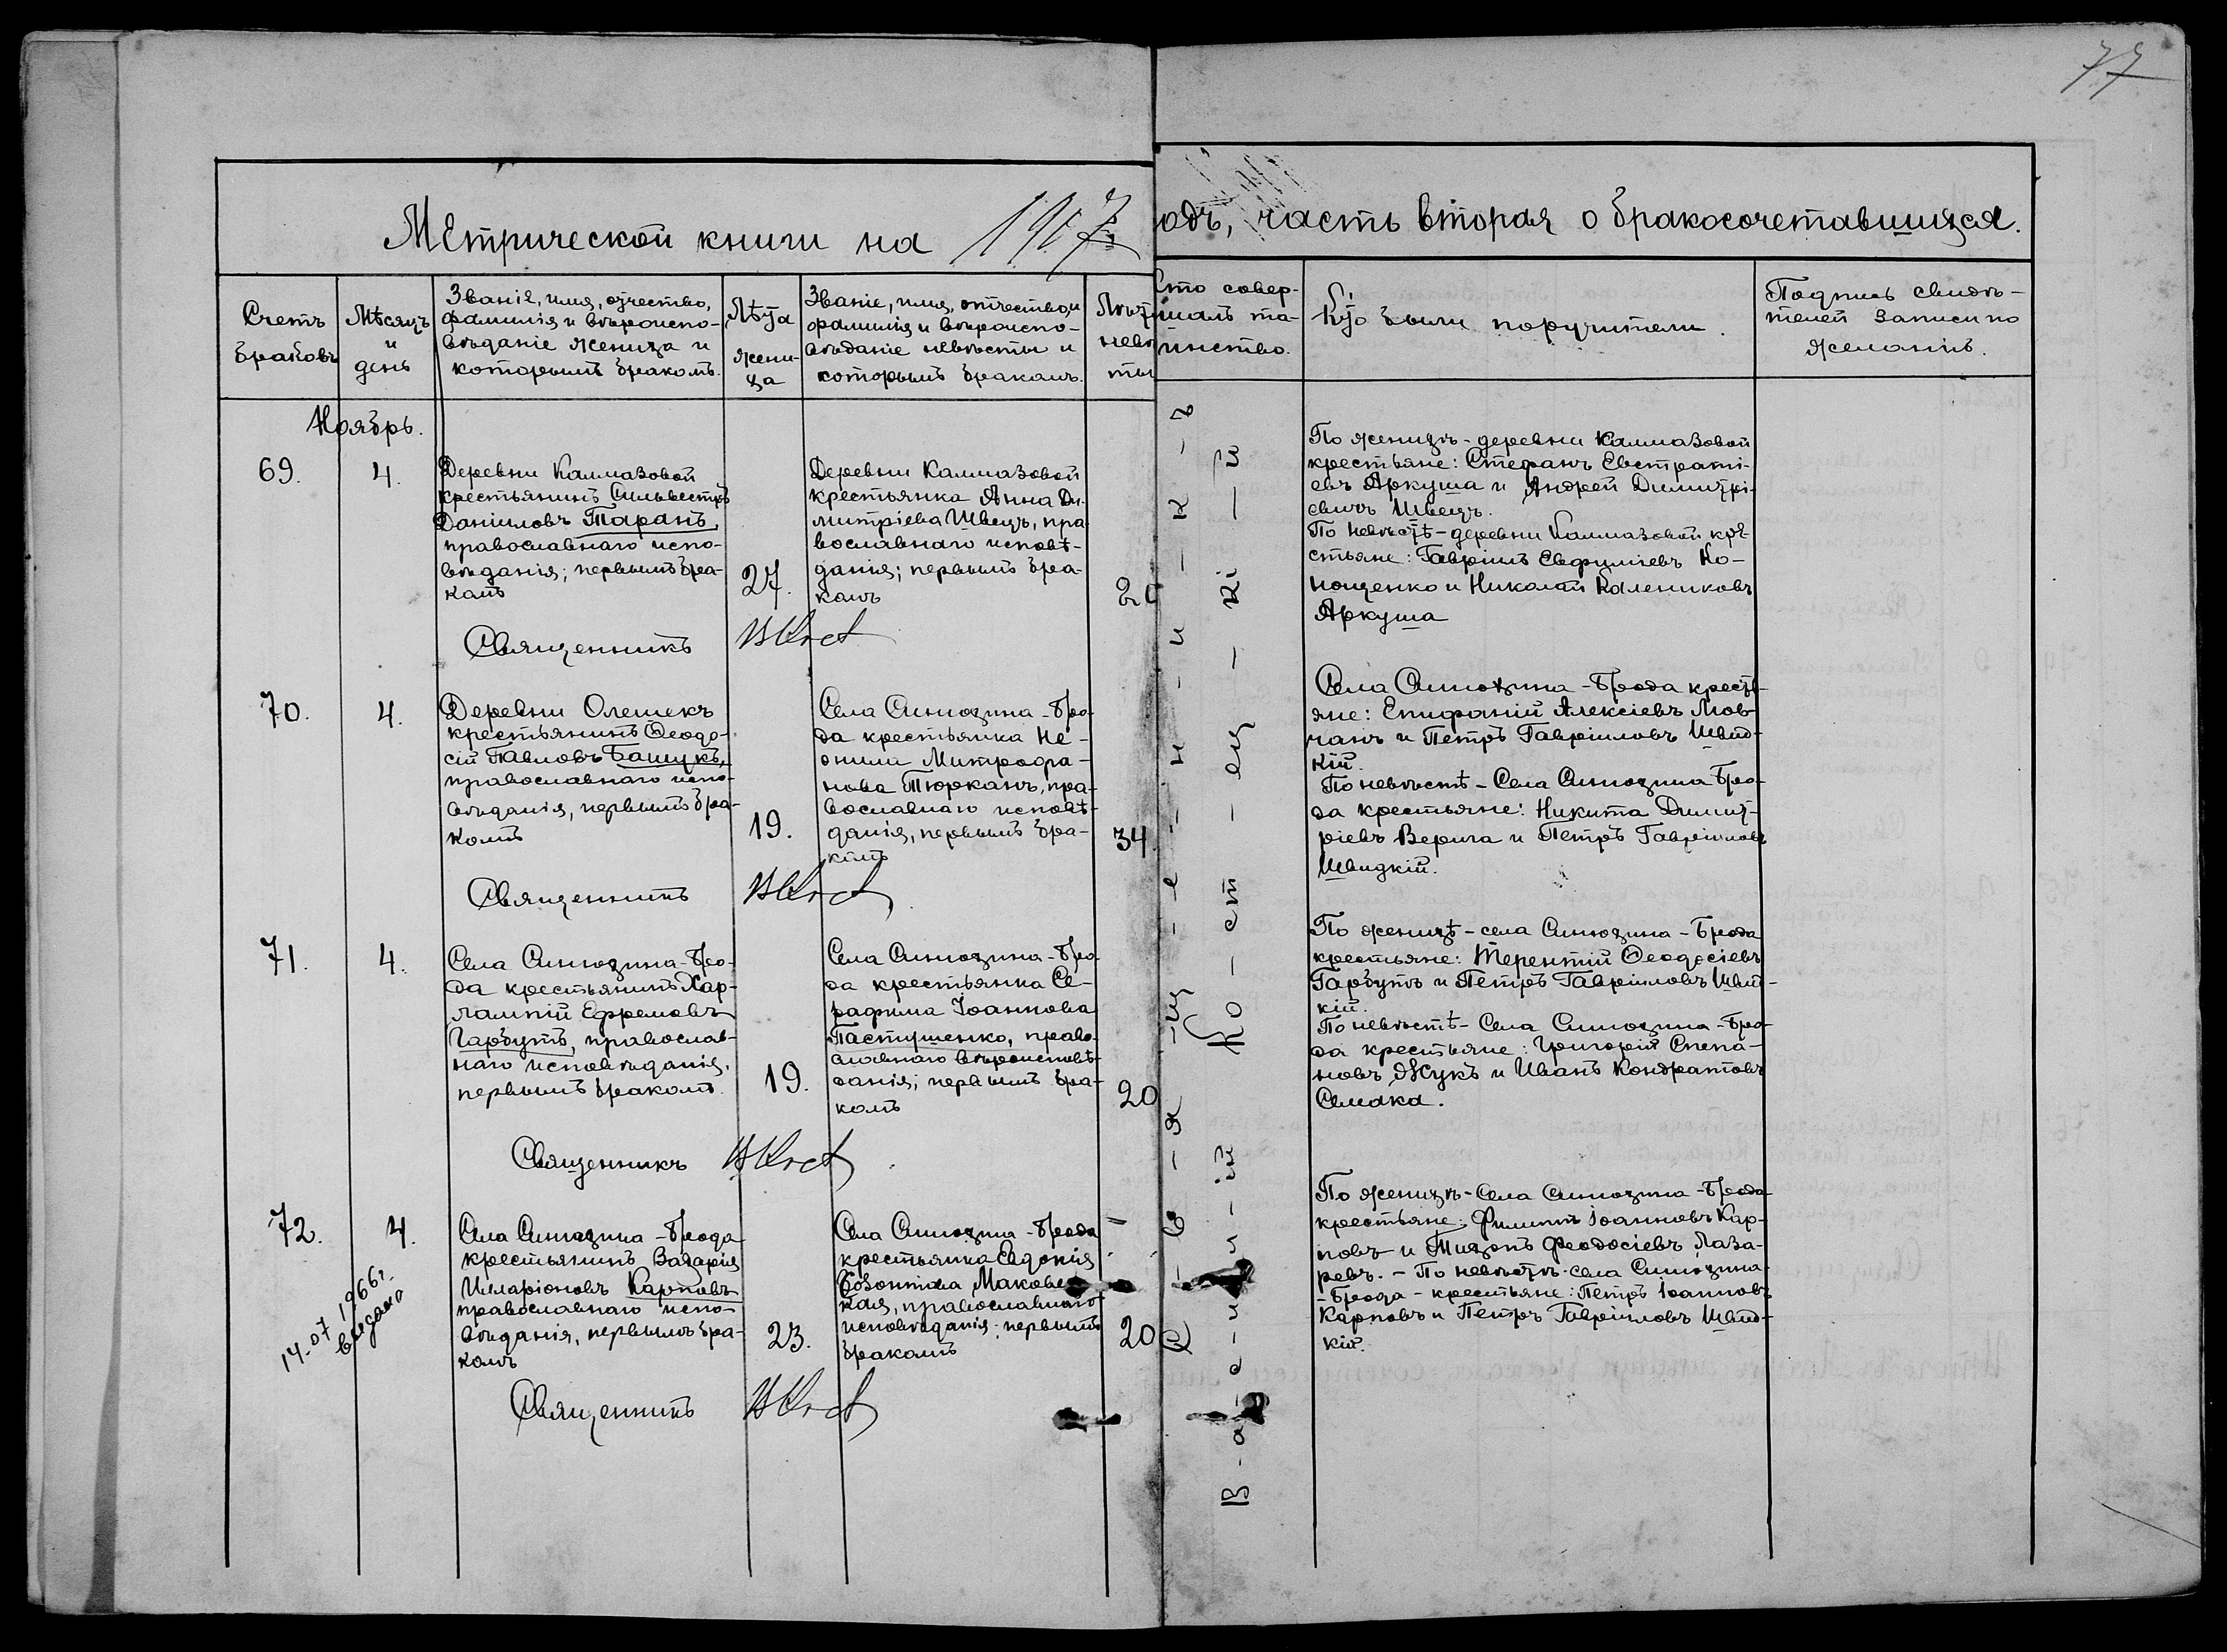 77
МЕтрической книги на 1907
одъ, часть вторая о бракосочетавшихся.
Счетъ браковъ
Мѣсяцъ и день
Званіе, имя, отчество,
фамилія и вѣроиспо-
вѣданіе жениха и
которымъ бракомъ.
Лѣта
жени-
ха
Званіе, имя, отчество и
фамилія и вѣроиспо-
вѣданіе невѣсты и
которымъ бракомъ.
Лѣта
невѣ
ты
Кто совер-
шалъ та-
инство.
Кто были поручители.
Подпись свидѣ-
телей записи по
желанію.
Ноябрь.
69.
4.
Деревни Калмазовой
крестьянинъ Сильвестръ
Даніиловъ Таранъ,
православнаго испо-
вѣданія; первымъ бра-
комъ
27.
Деревни Калмазовой
крестьянка Анна Ди-
митріева Швецъ, пра-
вославнаго исповѣ-
данія; первымъ бра-
комъ
Священникъ
По женихѣ - деревни Калмазовой
крестьяне: Стефанъ Евстраті-
евъ Аркуша и Андрей Димитрі-
евичъ Швецъ.
По невѣстѣ - деревни Калмазовой кре-
стьяне: Гавріилъ Евфиміевъ Ко-
нощенко и Николай Калениковъ
Аркуша
70.
4.
Деревни Олешекъ
крестьянинъ Ѳеодо-
сій Павловъ Башукъ,
православнаго испо-
вѣданія, первымъ бра-
комъ
19.
Села Синюхина - Бро-
да крестьянка Не-
онила Митрофа-
нова Тюрканъ, пра-
вославнаго исповѣ-
данія, первымъ бра-
комъ
34.
Священникъ
Села Синюхина - Брода кресть-
яне: Епифаній Алексіевъ Мов-
чанъ и Петръ Гавріиловъ Швид-
кій.
По невѣстѣ - Села Синюхина Бро-
да крестьяне: Никита Димит-
ріевъ Верига и Петръ Гавріиловъ
Швидкій.
71.
4.
Села Синюхина - Бро-
да крестьянинъ Хар-
лампій Ефремовъ
Гарбузъ, православ-
наго исповѣданія,
первымъ бракомъ.
19.
Села Синюхина - Бро-
да крестьянка Се-
рафима Іоаннова
Пастушенко, право-
славнаго вѣроисповѣ-
данія; первымъ бра-
комъ
20
Священникъ
По женихѣ - села Синюхина - Брода
крестьяне: Терентій Ѳеодосіевъ
Гарбузъ и Петръ Гавріиловъ Швид-
кій.
По невѣстѣ - Села Синюхина - Бро-
да крестьяне: Григорій Степа-
новъ Жукъ и Иванъ Кондратовъ
Семака.
72.
4.
14-07 1966 г.
выдано
Села Синюхина - Брода
крестьянинъ Захарія
Илларіоновъ Карповъ
православнаго испо-
вѣданія, первымъ бра-
комъ
23.
Села Синюхина - Брода
крестьянка Евдокія
Маковец
кая, православнаго
исповѣданія; первымъ
бракомъ
20
Священникъ
По женихѣ - Села Синюхина - Брода
крестьяне: Филиппъ Іоанновъ Кар-
повъ и Тихонъ Феодосіевъ Лаза-
ревъ. - По невѣстѣ - села Синюхина
- Брода - крестьяне: Петръ Іоанновъ
Карповъ и Петръ Гавріиловъ Швид-
кій.
С - в - я - щ - е - н - н - и - к - ъ
В - а - с - и - л - ій Ко - ст - ец - кі - й